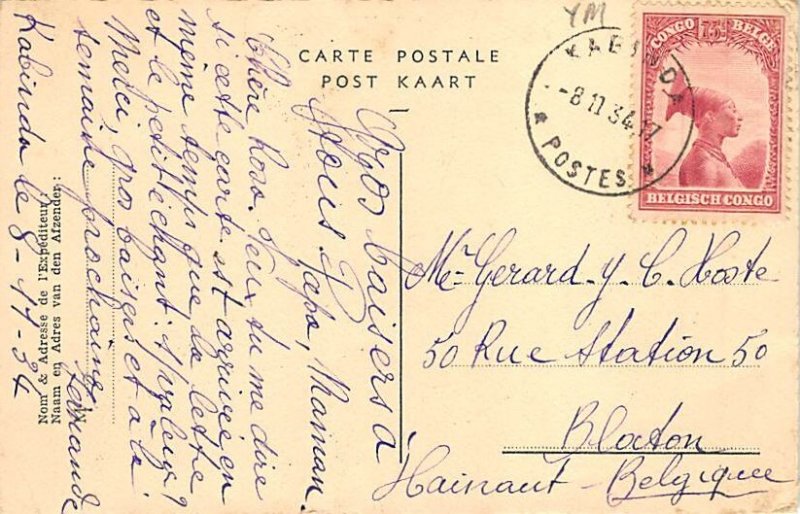 YM
CARTE POSTALE
POST KAART
CONGO BELGE
75c
BELGISCH CONGO
KABINDA
-8 11 34 17
POSTES
Kabinda le 8-11-34
Chère
Veux-tu me dire
si cette carte est arrivée en
même temps que la lettre
et le petit échant. s/valeur ?
Merci, gros baisers et à la
semaine prochaine
Fernande
Gros baisers à
Papa, Maman.
Nom & Adresse de l'Expéditeur
Naam en Adres van den Afzender :
Mr Gerard. y. C. Hoste
50 Rue Station 50
Blaton
Hainaut - Belgique